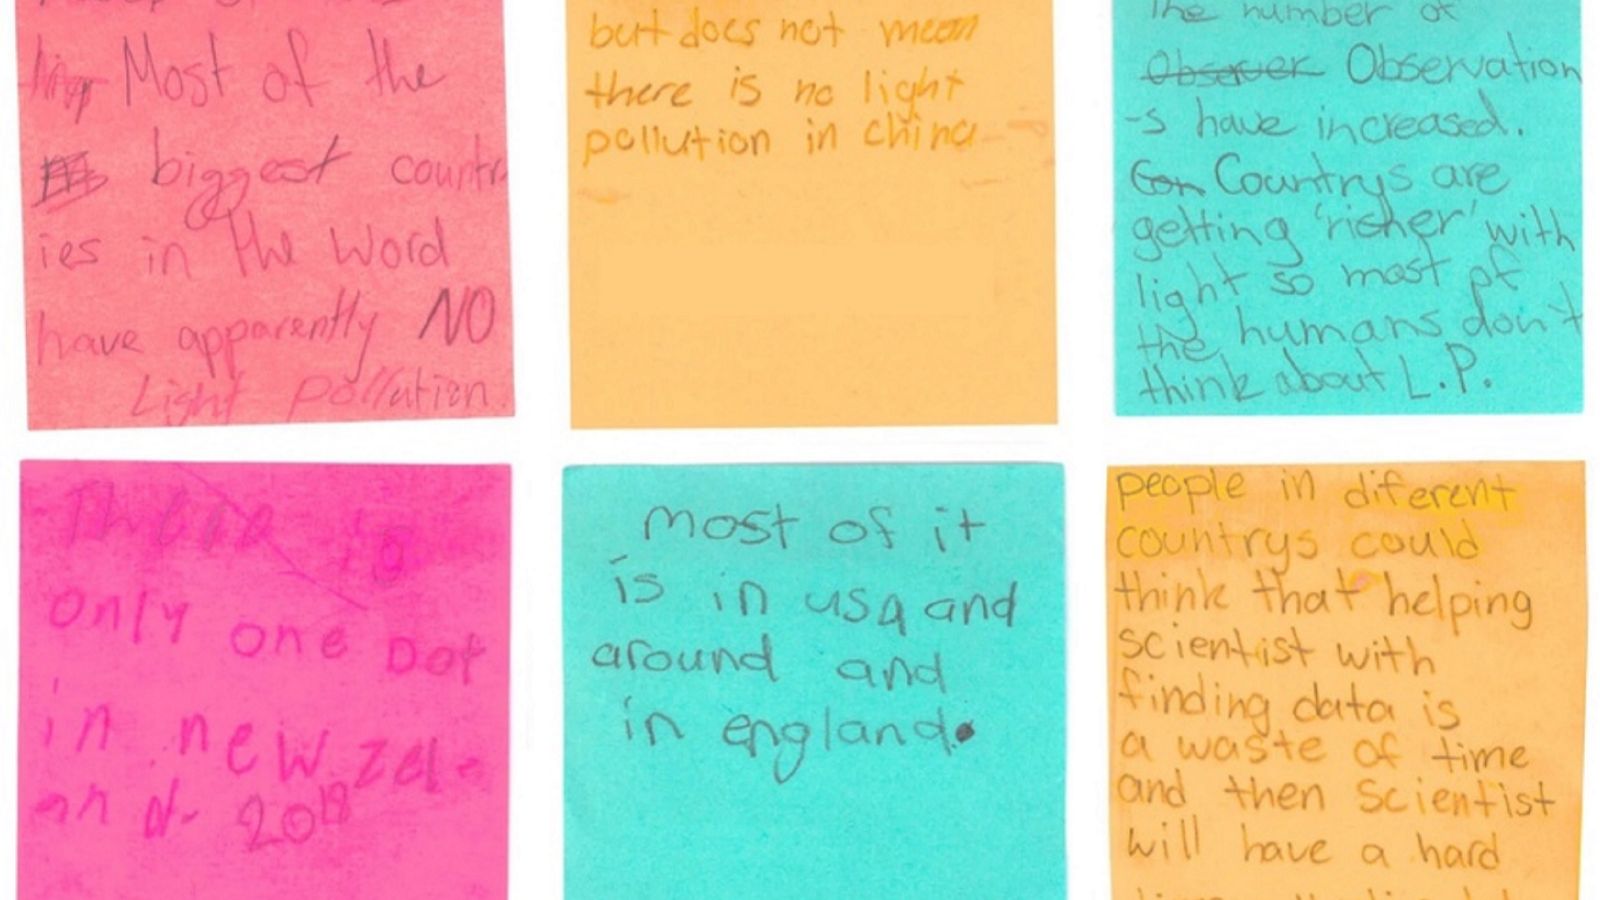 Most of the
biggest countr
ies in the Word
have apparently NO
Light pollution.
but does not mean
there is no light
pollution in china
The number of
Observer Observation
-s have increased.
Con Countrys are
getting 'risher' with
light so most of
the humans don't
think about L.P.
There is
only one Dot
in new zel-
and 2018
most of it
is in usa and
around and
in england.
people in diferent
countrys could
think that helping
scientist with
finding data is
a waste of time
and then scientist
will have a hard